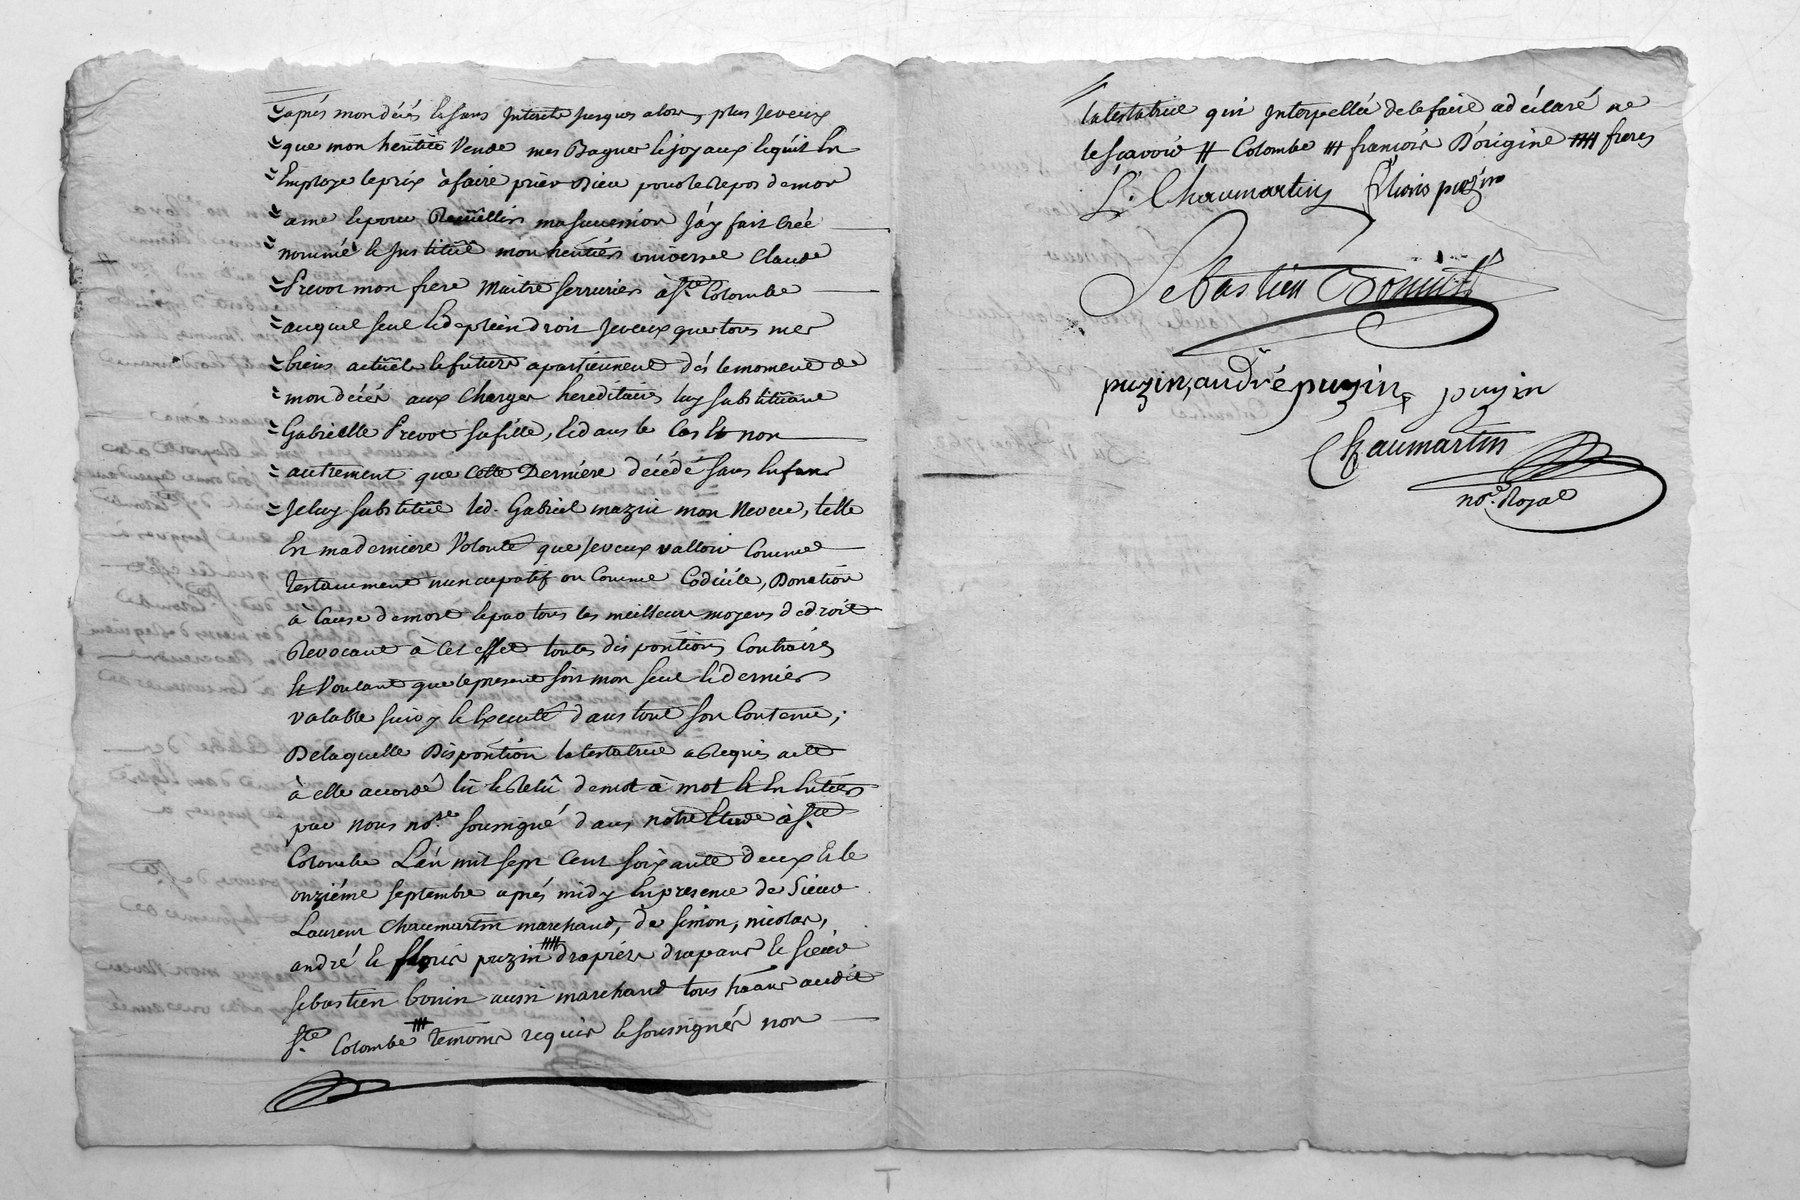 après mon décès et sans Interets jusques alors, plus Jeveux
que mon heritiée Vende mes Bagues et joyaux et quil En
Employe leprix àfaire prier Dieu pour le Repos demon
ame et pour Recüeillir masuccession J'ay fait Créé
nommé et Jnstitüé mon heritiér universel Claude
Prevot mon frere Maitre Serruriér à Ste Colombe
auquel seul et de plein droit Jeveux que tous mes
biens actüels et futurs apartiennent dés lemoment de
mon décés aux Charges hereditaires luy substitüant
Gabrielle Prevot safille, et dans le Cas et non
autrement que Cette Derniére décédé sans Enfans
Jeluy substitüe led. Gabriel mazin mon Neveu, telle
En maderniere Volonté que Jeveux valloir Comme
testament nuncupatif ou Comme Codicile, Donation
à Cause demort et par tous les meilleurs moyens dedroit
Revocant à Cet effet toutes dispositions Contraires
Et Voulant que le present soit mon seul et dernier
valable suivy et Executé dans tout son Contenu;
Delaquelle Disposition latestatrice a Requis acte
à elle accordé lû et Relû demot à mot et En Entiér
par nous nore soussigné dans notre Etude à Ste
Colombe L'an mil sept Cent soixante deux et le
onziéme septembre aprés midy En presence de Sieur
Laurent Chaumartin marchand, de simon, nicolas,
andré et floris puzin #### drapiérs drapans et sieur
sebastien bonin aussi marchand tous htans audit
Ste Colombe ### temoins requis et soussignés non
latestatrice qui Interpellée de le faire adéclaré ne
le sçavoir # Colombe ### françois D'origine #### freres
L. Chaumartin floris puzin
Sebastien Bonin
puzin, andré puzin puzin
Chaumartin
nore Royal